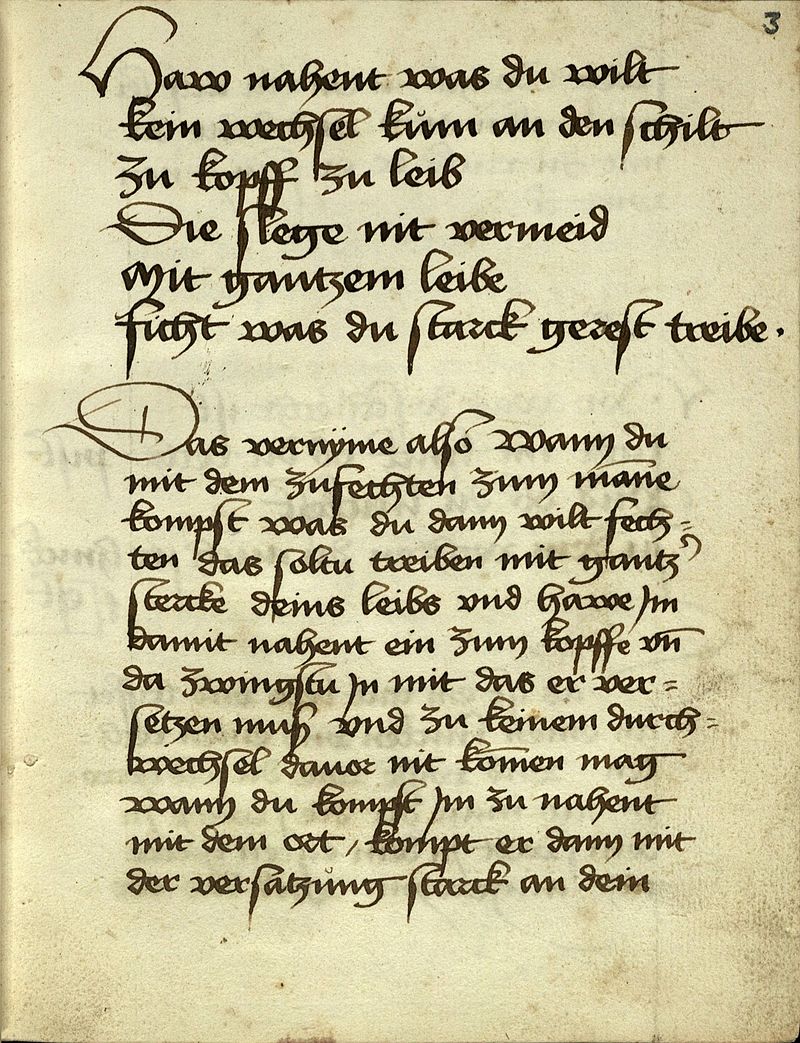 3
Haw nahent was du wilt
kein wechsel kům an den schilt
zu kopff zu leib
Die slege nit vermeid
Mit gantzem leibe
ficht was du starck gerest treibe ·
Das vernÿme also wann du
mit dem zufechten zum man̄e
kompst was du dann wilt fech=
ten das soltu treiben mit gantz͛
stercke deins leibs vnd hawe Jm
damit nahent ein zum kopffe vn̄
da zwingstu Jn mit das er ver=
setzen muß vnd zu keinem durch=
wechsel dauor nit kom̄en mag
wann du kompst Jm zu nahent
mit dem ort / kompt er dann mit
der versatzůng starck an dem